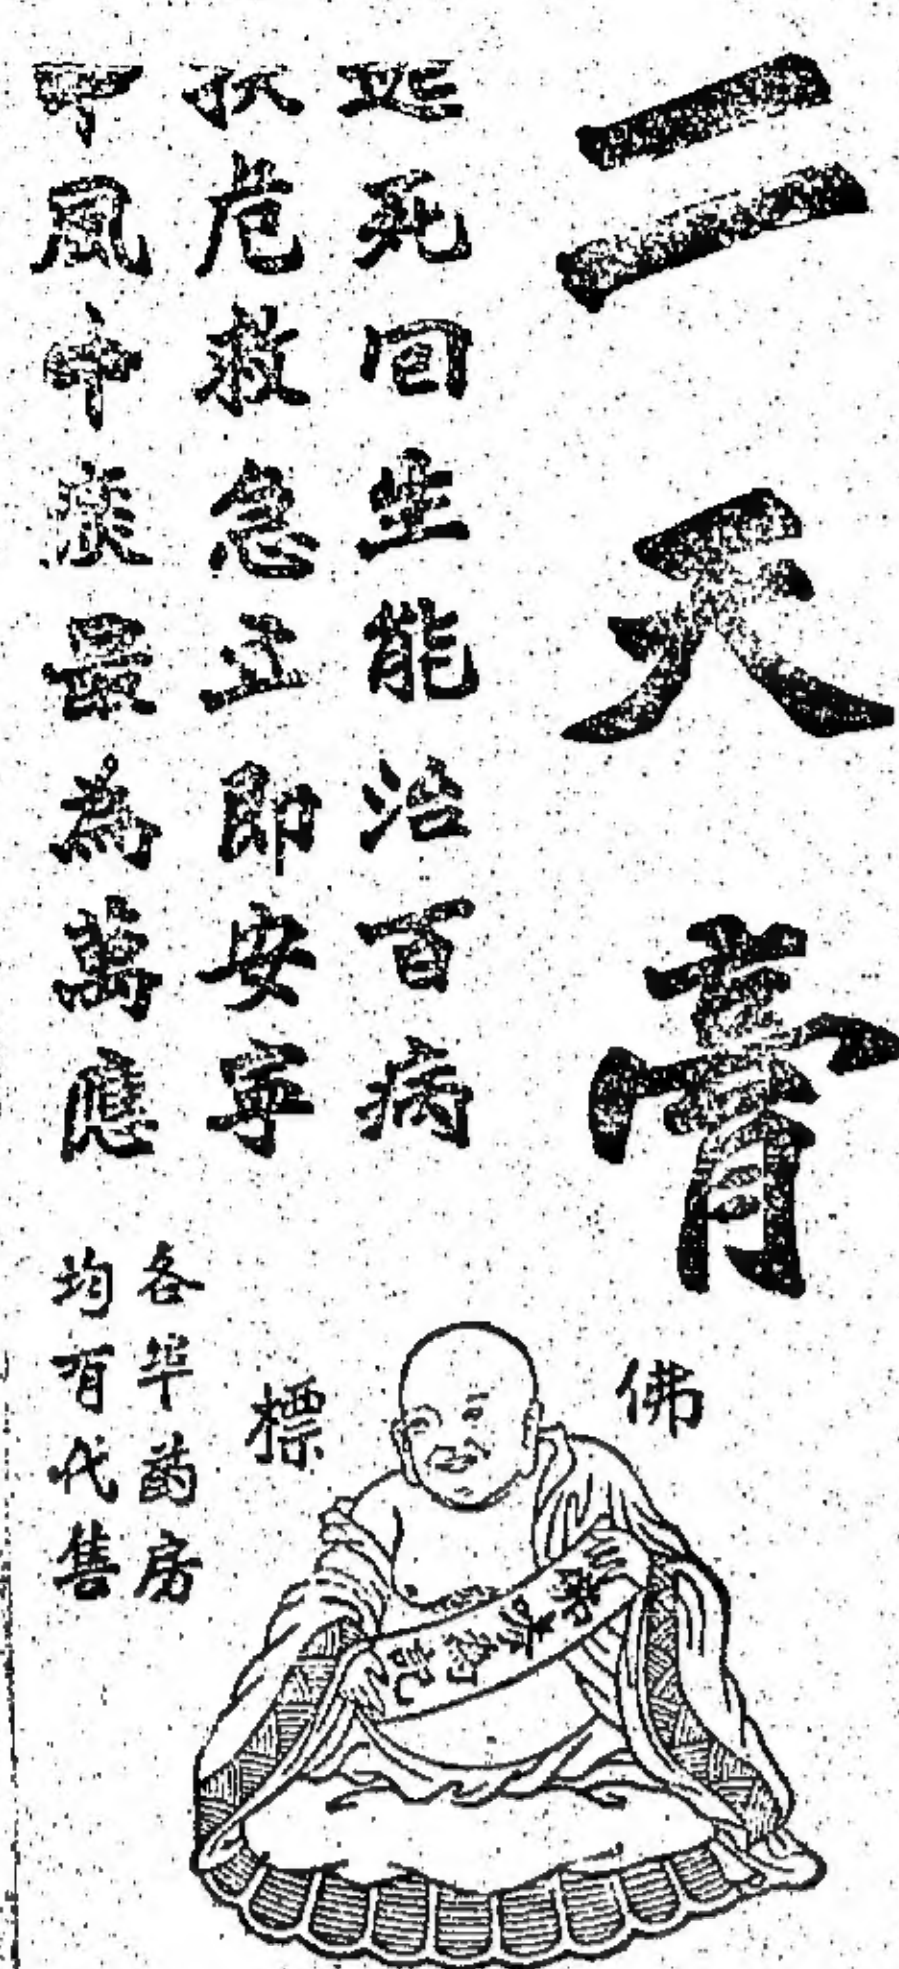 二天膏
起死回生能治百病
扶危救急立即安寧
中風中痰最為萬應
佛標
各埠葯房
均有代售
記